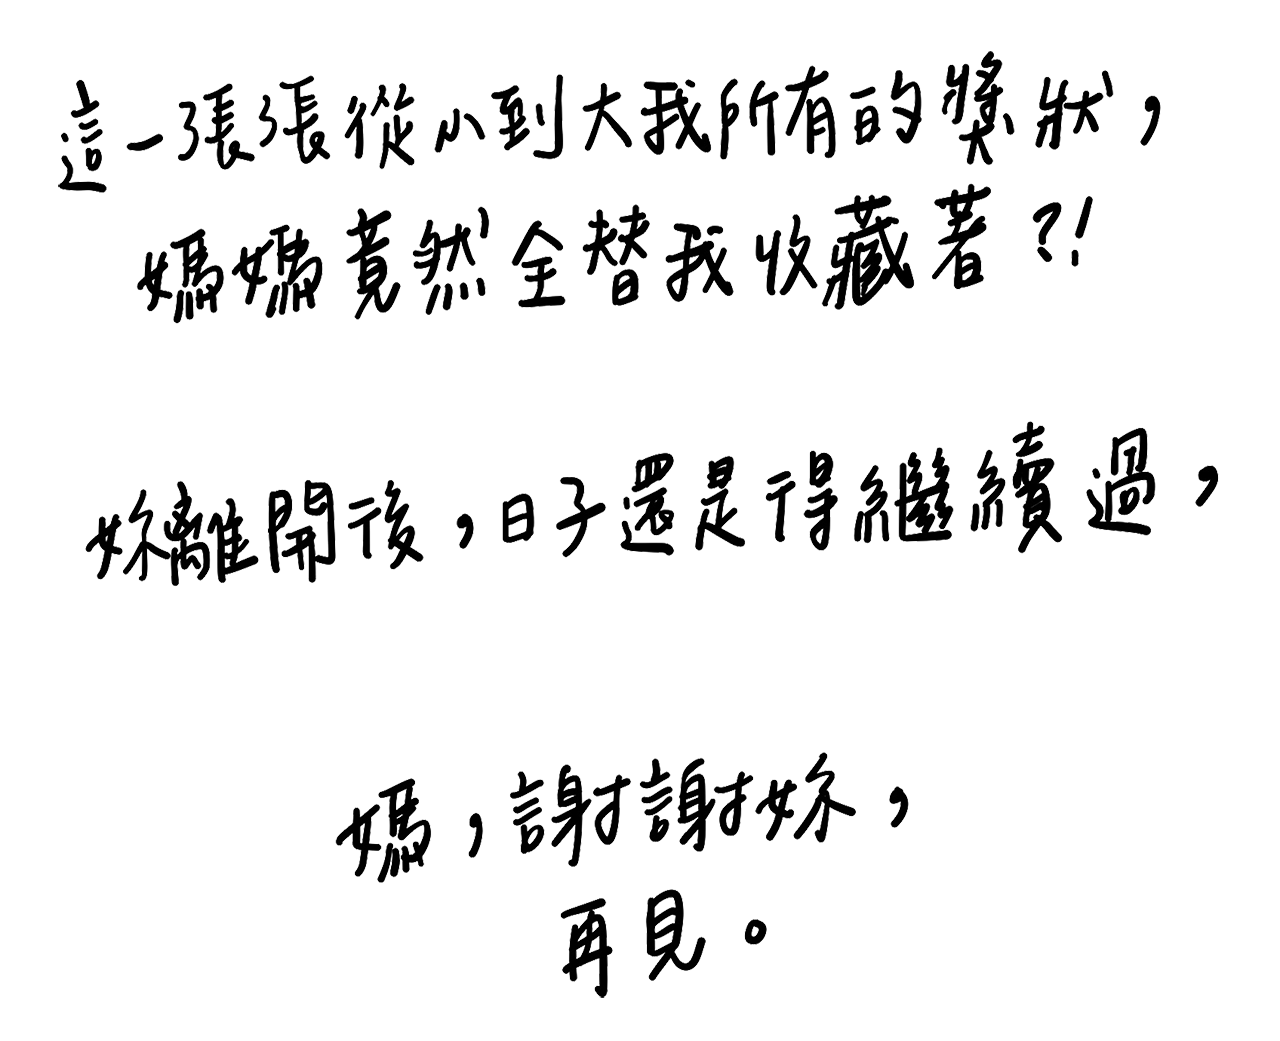 這一張張從小到大我所有的獎狀，
媽媽竟然全替我收藏著?!
妳離開後，日子還是得繼續過，
媽，謝謝妳，
再見。